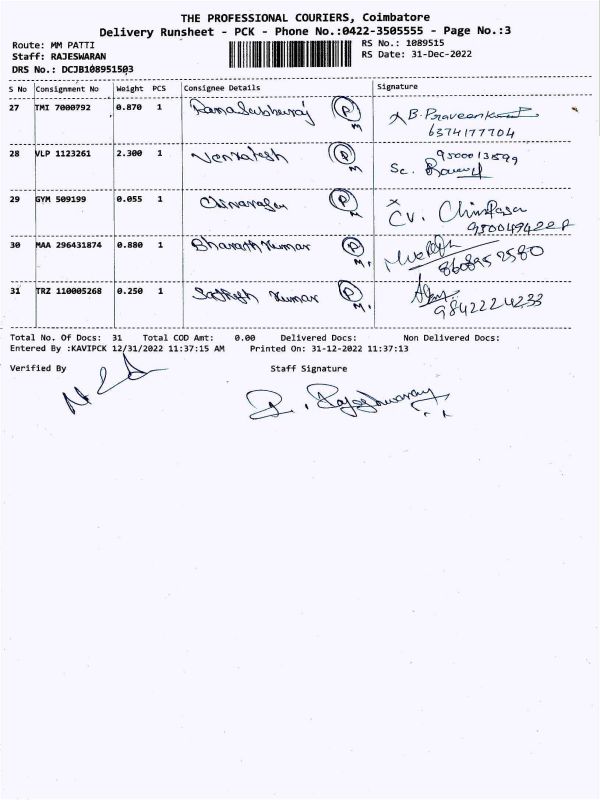 THE PROFESSIONAL COURIERS, Coimbatore
Delivery Runsheet - PCK - Phone No.:0422-3505555 - Page No.:3
Route: MM PATTI
Staff: RAJESWARAN
DRS No.: DCJB108951503
RS No.: 1089515
RS Date: 31-Dec-2022
S No Consignment No Weight PCS Consignee Details Signature
27 TMI 7000792 0.870 1 Ramasubburaj P M B. Praveenkumar
6374177704
28 VLP 1123261 2.300 1 Venkatesh P M 9500013599
Sc.
29 GYM 509199 0.055 1 P M X
CV.
30 MAA 296431874 0.880 1 Bharath Kumar P M.
860895 2580
31 TRZ 110005268 0.250 1 Sathish Kumar P M.
9842224233
Total No. Of Docs: 31 Total COD Amt: 0.00 Delivered Docs: Non Delivered Docs:
Entered By :KAVIPCK 12/31/2022 11:37:15 AM Printed On: 31-12-2022 11:37:13
Verified By Staff Signature